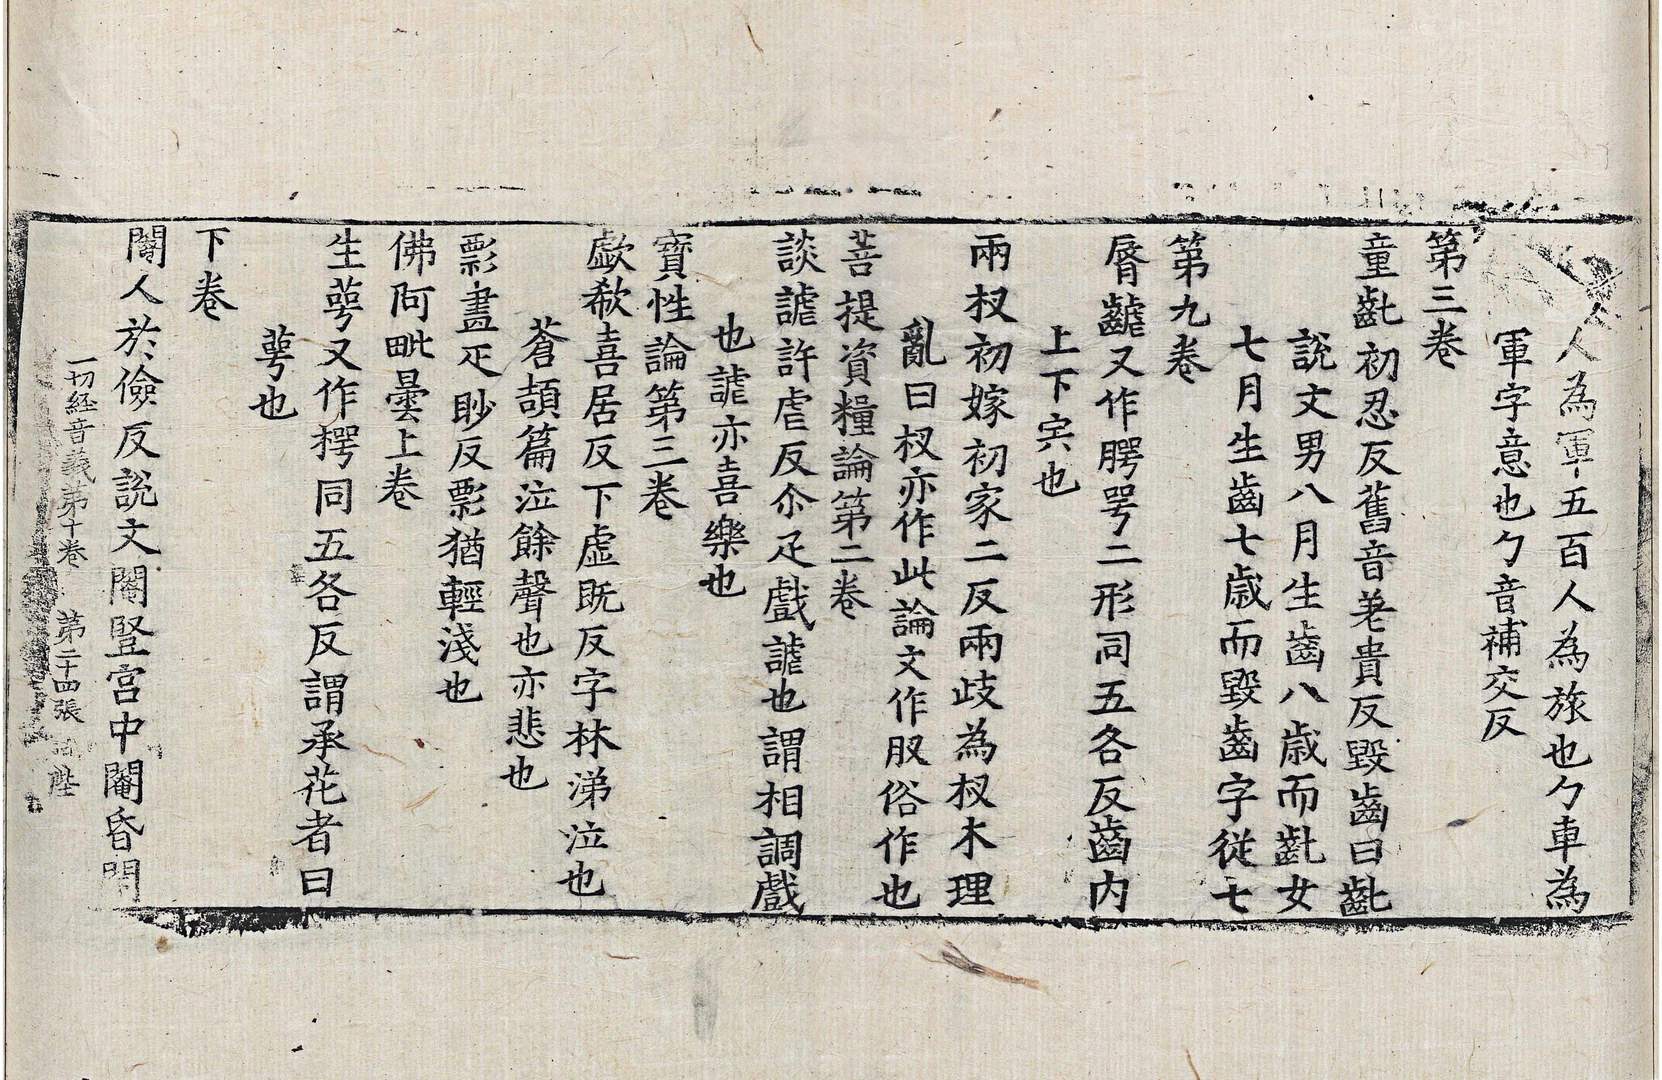 人人為軍五百人為旅也勹車為
軍字意也勹音補交反
第三卷
童齔初忍反舊音差貴反毀齒曰齔
說文男八月生齒八歲而齔女
七月生齒七歲而毀齒字從七
第九卷
脣齶又作腭咢二形同五各反齒內
上下肉也
兩杈初嫁初家二反兩歧為杈木理
亂曰杈亦作此論文作㕚俗作也
菩提資糧論第二卷
談謔許虐反尒疋戲謔也謂相調戲
也謔亦喜樂也
寶性論第三卷
歔欷喜居反下虛既反字林涕泣也
蒼頡篇泣餘聲也亦悲也
㯹盡疋眇反㯹猶輕淺也
佛阿毗曇上卷
生萼又作㮙同五各反謂承花者曰
萼也
下卷
閹人於儉反說文閹豎宮中閹昏閇
一切經音義第十卷 第二十四張 陛